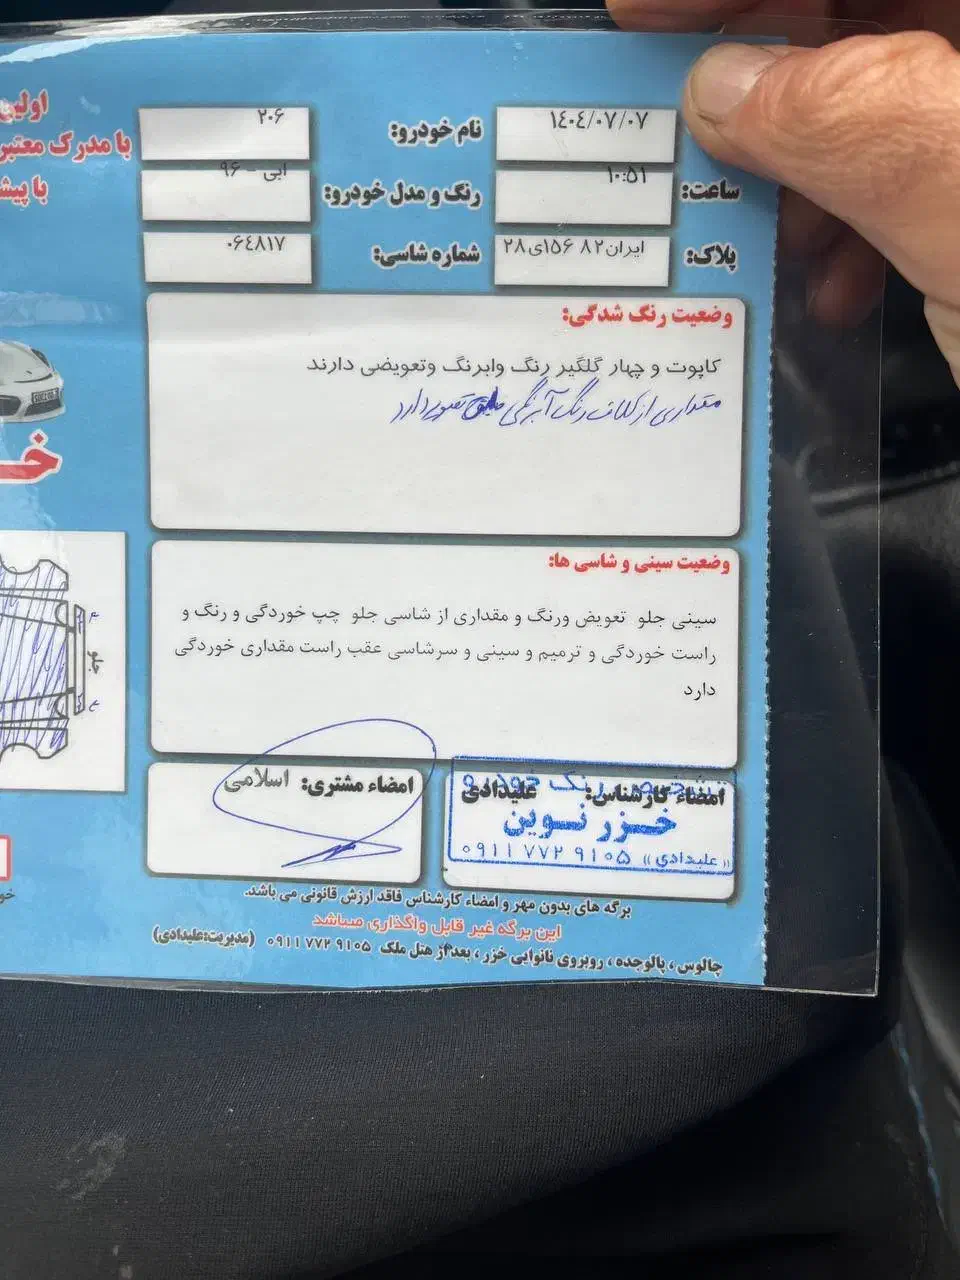 ۱٤۰٤/۰۷/۰۷
نام خودرو: ۲۰۶
ساعت: ۱۰:۵۱
رنگ و مدل خودرو: ابی - ۹۶
پلاک: ایران۸۲ ۱۵۶ی۲۸
شماره شاسی: ۰۶٤۸۱۷
وضعیت رنگ شدگی:
کاپوت و چهار گلگیر رنگ وابرنگ وتعویضی دارند
مقداری از کلاف رنگ آبرنگی طبق تصویر دارد
وضعیت سینی و شاسی ها:
سینی جلو تعویض ورنگ و مقداری از شاسی جلو چپ خوردگی و رنگ و
راست خوردگی و ترمیم و سینی و سرشاسی عقب راست مقداری خوردگی
دارد
امضاء کارشناس: علیدادی
رنگ خودرو
خزر نوین
«علیدادی» ۰۹۱۱۷۷۲۹۱۰۵
امضاء مشتری: اسلامی
برگه های بدون مهر و امضاء کارشناس فاقد ارزش قانونی می باشد.
این برگه غیر قابل واگذاری میباشد
چالوس ، پالوجده ، روبروی نانوایی خزر ، بعد از هتل ملک ۰۹۱۱۷۷۲۹۱۰۵ (مدیریت:علیدادی)
اولین
با مدرک معتبر
جلو